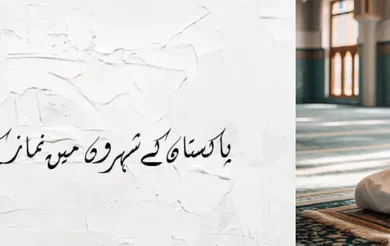 پاکستان کے شہروں میں نماز